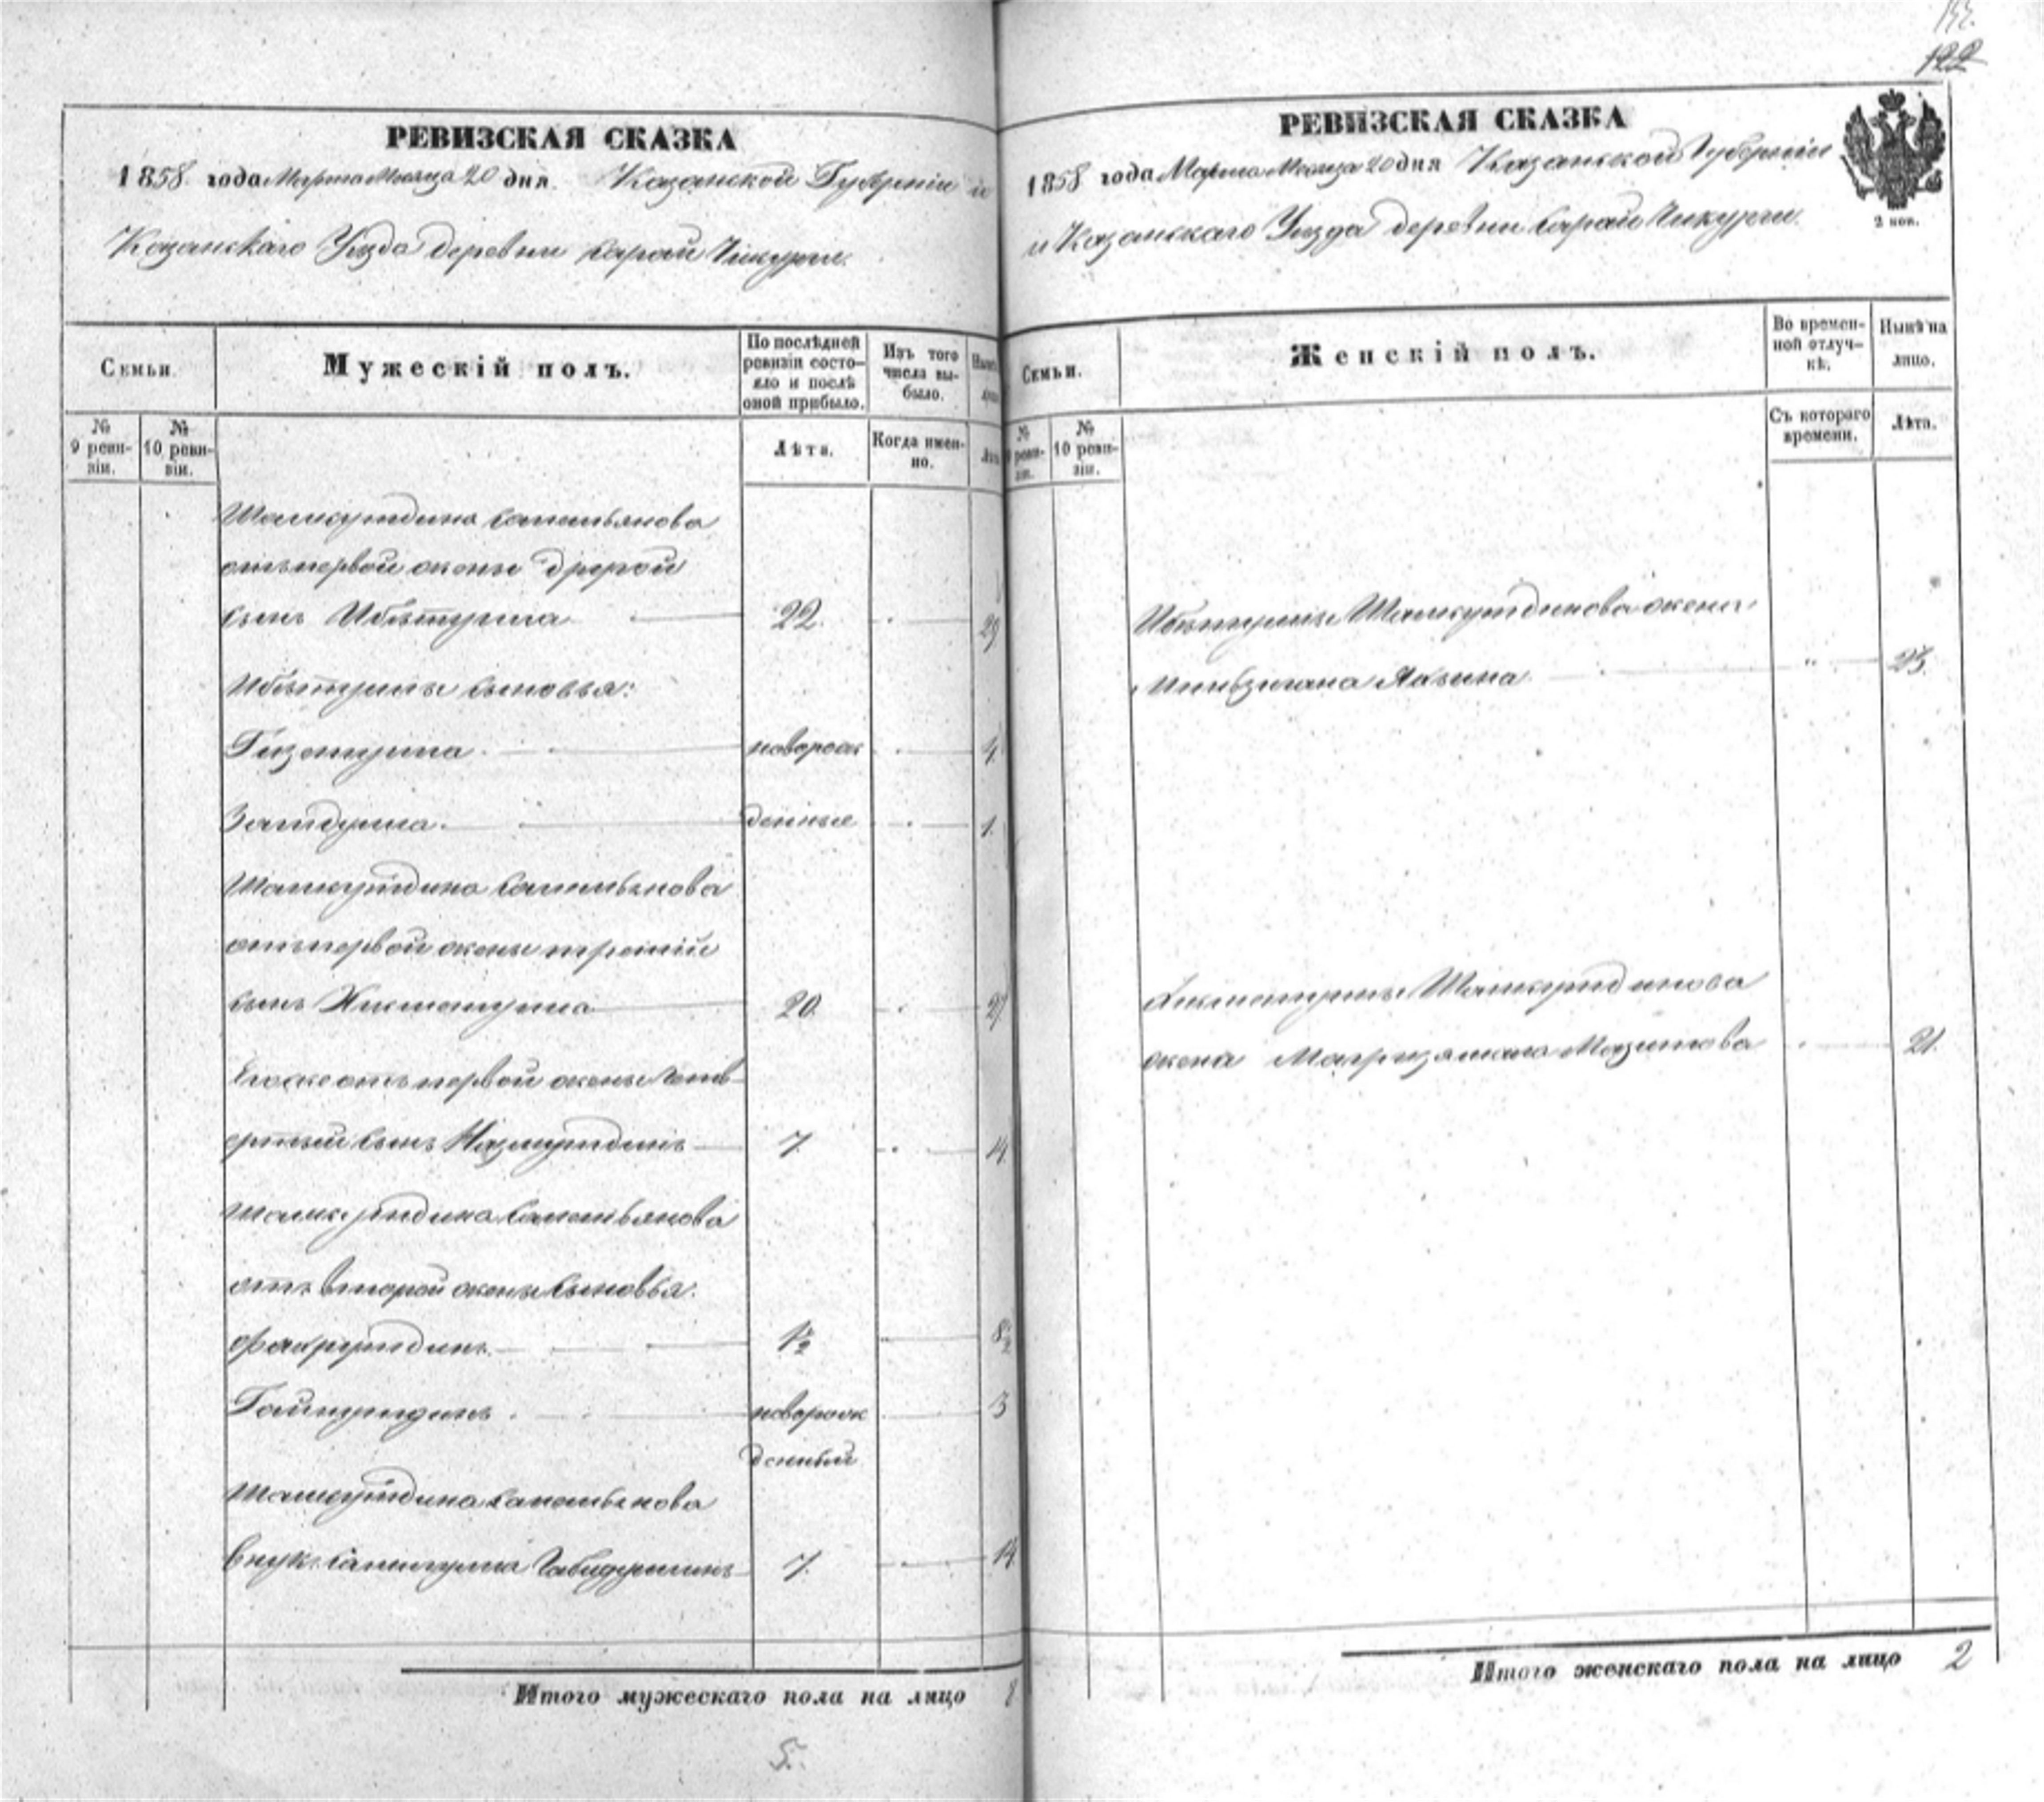 122
РЕВИЗСКАЯ СКАЗКА
1858 года Марта Месяца 20 дня. Казанской Губерніи и
Казанскаго Уезда деревни Сарай Чикурчи.
Семьи.
Мужескій полъ.
По послѣдней ревизіи состояло и послѣ оной прибыло.
Изъ того числа выбыло.
№ 9 ревизіи.
№ 10 ревизіи.
Лѣта.
Когда именно.
Шамкутдина
отъ первой жены другой
сынъ Ибятулла 22. 29
Ибятуллы сыновья:
Гизетулла новорож 4
денные 1.
Шамкутдина
отъ первой жены третій
сынъ Хикматулла 20. 27
Его же отъ первой жены четв-
ертый сынъ Назмутдинъ 7. 14
Шамкутдина
отъ второй жены сыновья:
Фахрутдинъ 1½ 8½
Гайнутдинъ новорож 3
денный
Шамкутдина
внукъ 7. 14
Итого мужескаго пола на лицо 8
5.
РЕВИЗСКАЯ СКАЗКА
1858 года Марта Месяца 20 дня Казанской Губерніи
и Казанскаго Уезда деревни Сарай Чикурчи.
2 коп.
Семьи.
Женскій полъ.
Во временной отлучкѣ.
Нынѣ на лицо.
№ 9 ревизіи.
№ 10 ревизіи.
Съ котораго времени.
Лѣта.
Ибятуллы Шамкутдинова жена
" 23.
Хикматуллы Шамкутдинова
жена Мазитова 21.
Итого женскаго пола на лицо 2